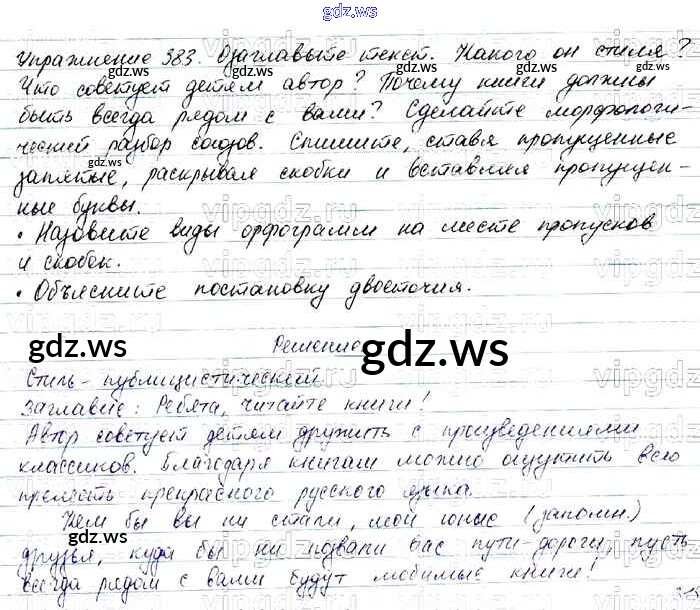 gdz.ws
Упражнение 383. Озаглавьте текст. Какого он стиля?
Что советует детям автор? Почему книги должны
быть всегда рядом с вами? Сделайте морфологи-
ческий разбор союзов. Спишите, ставя пропущенные
запятые, раскрывая скобки и вставляя пропущен-
ные буквы.
• Назовите виды орфограмм на месте пропусков
и скобок.
• Объясните постановку двоеточия.
Решение
gdz.ws
Стиль - публицистический
Заглавие: Ребята, читайте книги!
Автор советует детям дружить с произведениями
классиков. Благодаря книгам можно ощутить всю
прелесть прекрасного русского языка.
Кем бы вы ни стали, мои юные (запомн.)
друзья, куда бы ни позвали вас пути-дороги, пусть
всегда рядом с вами будут любимые книги!